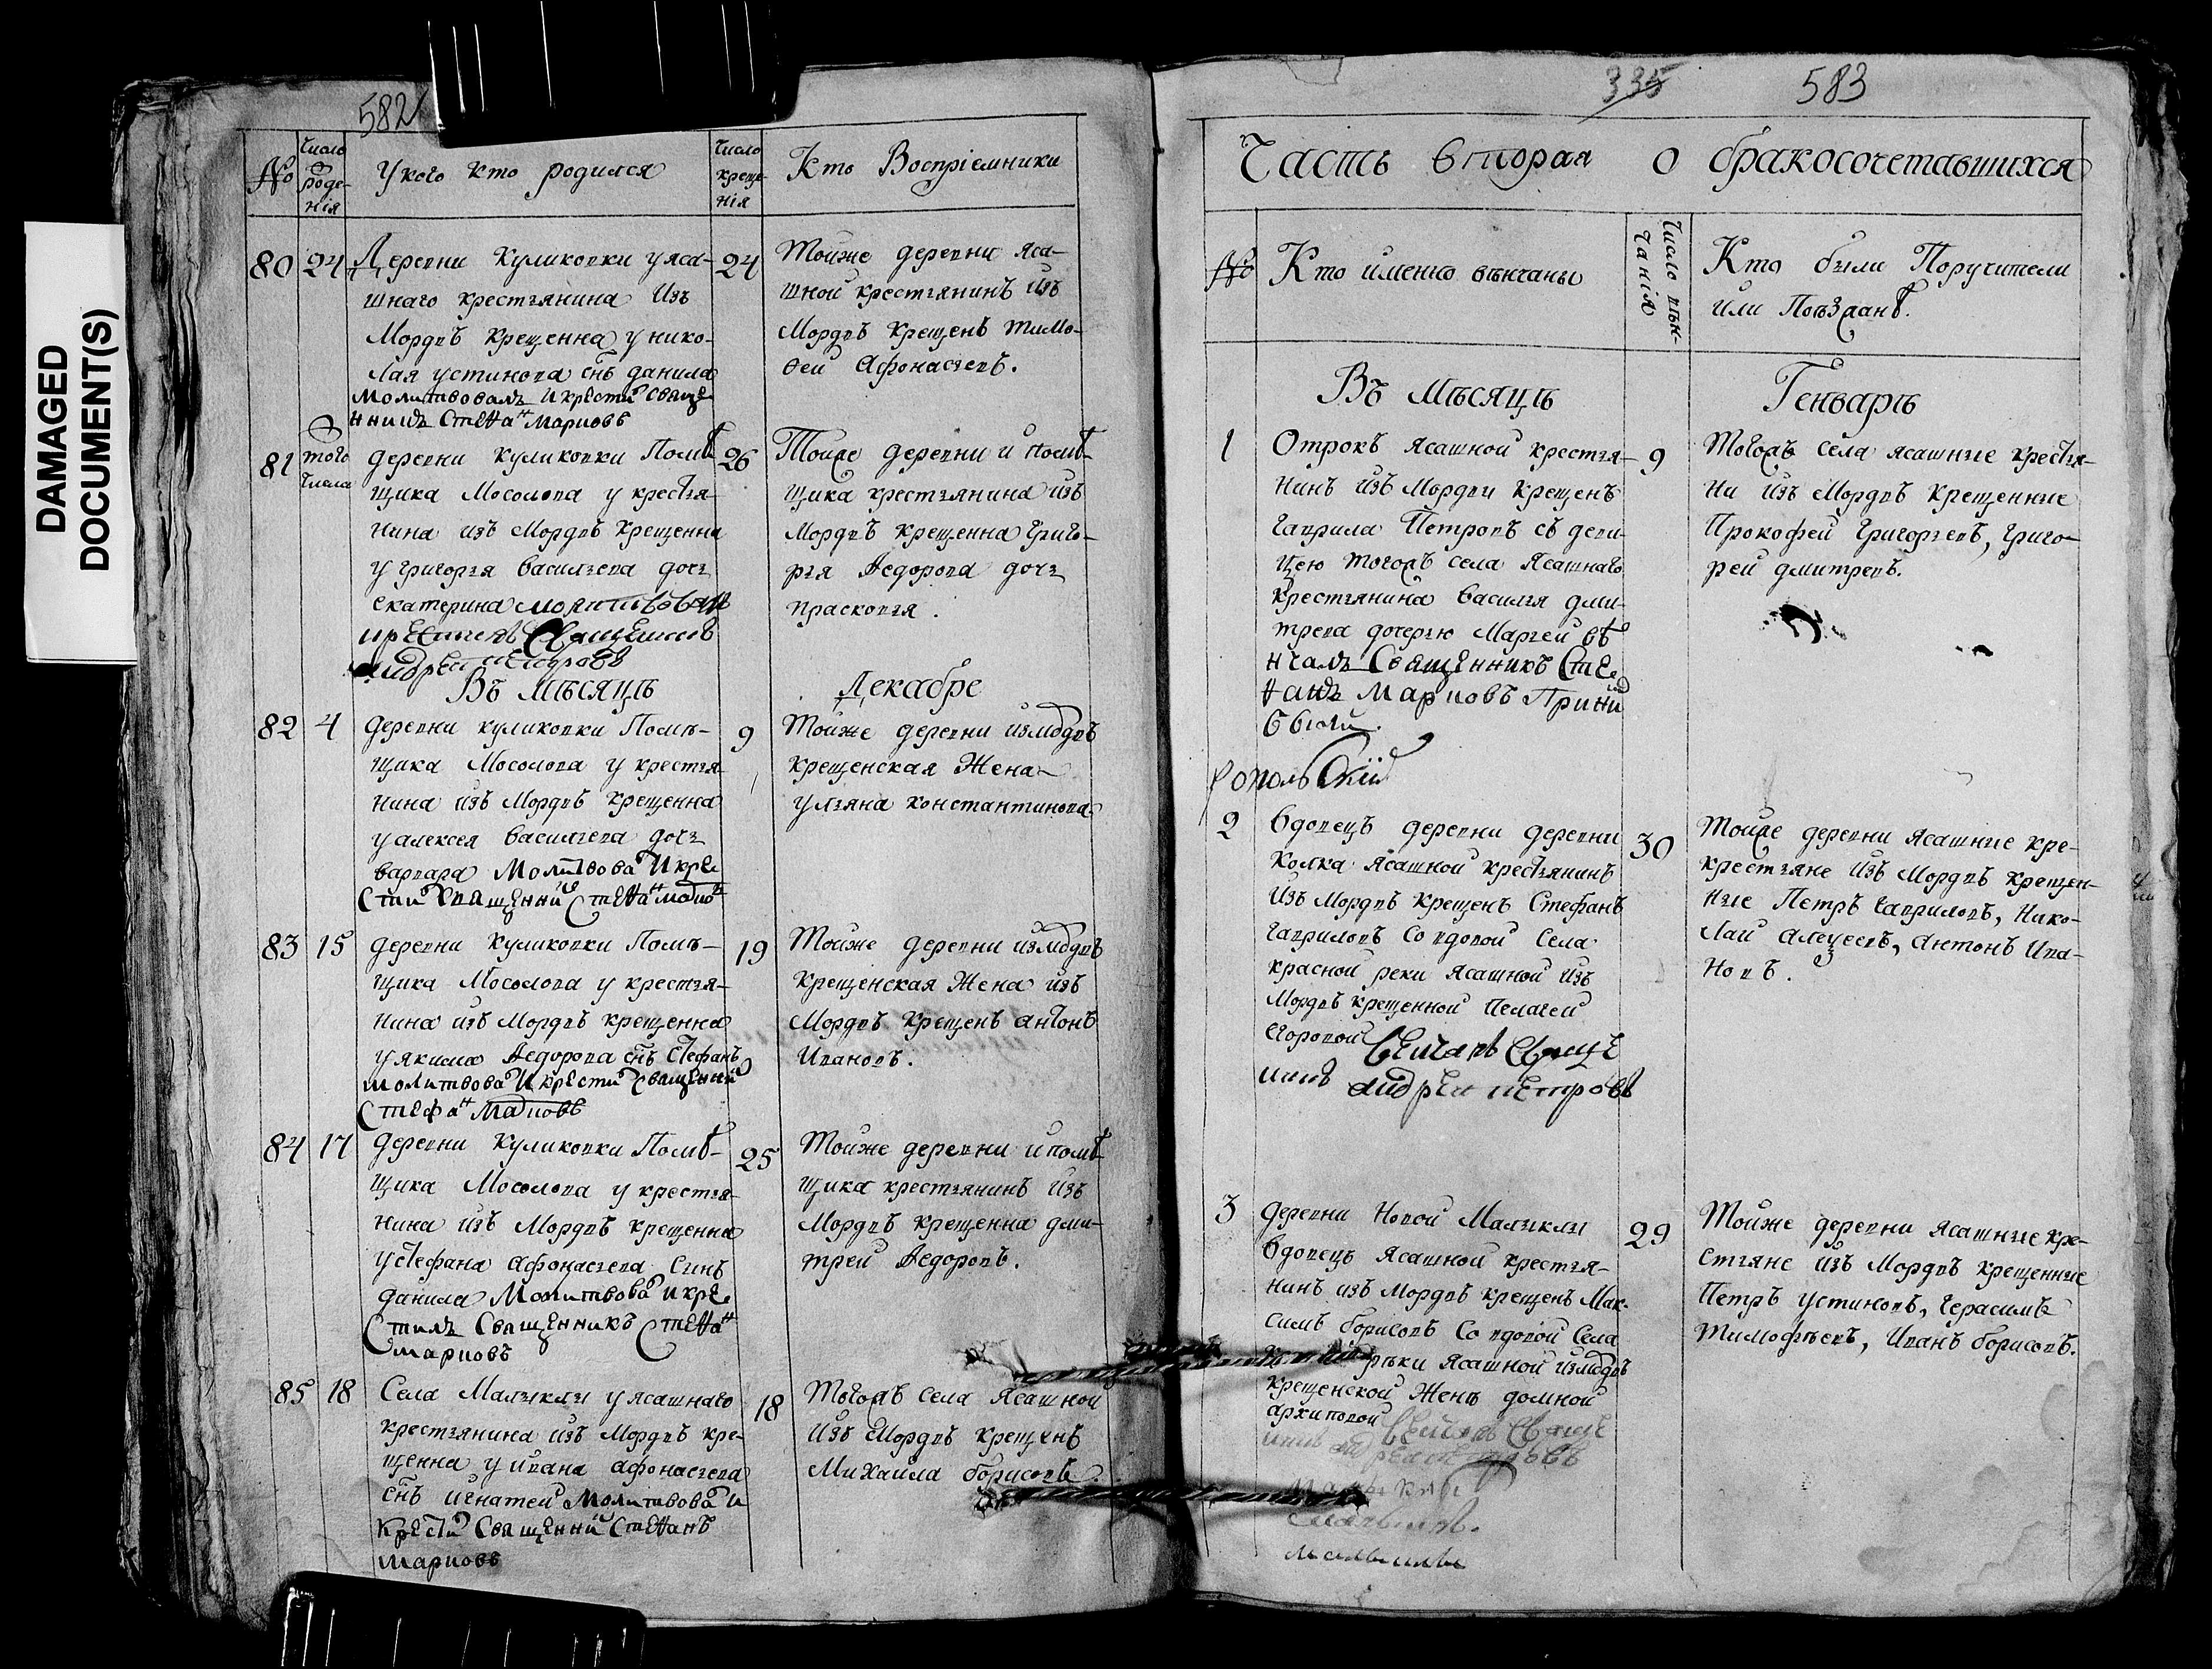 DAMAGED
DOCUMENT(S)
582
№
Число
роде-
нія
У кого кто родился
Число
креще-
нія
Кто Воспріемники
80
24
Деревни Куликовки у яса-
шнаго крестьянина Изъ
Мордвъ Крещенна у нико-
лая устинова снъ данила
молитвовалъ и крести свяще
нникъ Стеѳанъ Марковъ
24
Тойже деревни яса-
шной крестьянинъ изъ
Мордвъ крещенъ тимо-
ѳеи Афонасьевъ.
81
того
числа
деревни куликовки Помѣ-
щика Мосолова у крестья-
нина изъ Мордвъ Крещенна
у григорья васильева дочь
екатерина молитвовал
крестилъ Священникъ
андреи петровъ
26
Тойже деревни и помѣ-
щика крестьянина изъ
Мордвъ крещенна григо-
рья Ѳедорова дочь
прасковья.
Въ Мѣсяцѣ Декабре
82
4
деревни куликовки Помѣ-
щика Мосолова у крестья-
нина изъ Мордвъ Крещенна
у алексея васильева дочь
варвара Молитвова и кре
сти Священни Стеѳанъ Марко
9
Тойже деревни измордвъ
крещенская Жена
ульяна константинова
83
15
деревни куликовки Помѣ-
щика Мосолова у крестья-
нина изъ Мордвъ крещенна
у якима Ѳедорова снъ стефанъ
молитвова и крести священни
Стефанъ Марковъ
19
Тойже деревни измордвъ
Крещенская Жена изъ
Мордвъ Крещенъ антонъ
Ивановъ.
84
17
деревни Куликовки Помѣ-
щика Мосолова у крестья-
нина изъ Мордвъ крещенна
у стефана афонасьева Сынъ
данила Молитвова и кре
стилъ Священникъ Стеѳанъ
Марковъ
25
Тойже деревни и помѣ-
щика крестьянинъ Изъ
Мордвъ крещенна дми-
трей Ѳедоровъ.
85
18
Села Малыклы у ясашнаго
крестьянина изъ Мордвъ кре-
щенна у ивана афонасьева
снъ игнатей Молитвова и
Крести Священни Стеѳанъ
Марковъ
18
Тогожъ села Ясашной
Изъ Мордвъ крещенъ
Михаила борисовъ.
335
583
Часть вторая о бракосочетавшихся
№
Кто именно вѣнчаны
Число вѣн-
чанія
Кто были Поручители
или Поѣзжанѣ.
Въ Мѣсяцѣ Генварѣ
1
Отрокъ ясашной крестья-
нинъ изъ Мордвы Крещенъ
гаврила Петровъ съ деви-
цею тогожъ села Ясашнаго
крестьянина василья дми-
трева дочерью Марьей вѣ
нчалъ Священникъ Сте
ѳанъ Марковъ При
9
Тогожъ села ясашные крестья-
ни изъ Мордвъ крещенные
Прокофей Григорьевъ, Григо-
рей дмитревъ.
2
Вдовецъ деревни деревни
Колка Ясашной крестьянинъ
Изъ Мордвъ крещенъ Стефанъ
гавриловъ Со вдовой Села
красной реки ясашной изъ
Мордвъ крещенной Пелагеи
егоровой венчалъ Свяще
никъ андреи петровъ
30
Тойже деревни ясашные кре-
крестьяне изъ Мордвъ крещен-
ные Петръ гавриловъ, Нико-
лаи алексеевъ, антонъ Ива-
новъ.
3
деревни Новой Малыклы
вдовецъ Ясашной крестья-
нинъ изъ Мордвъ крещенъ Мак-
симъ борисовъ Со вдовой Села
рѣки Ясашной измордвъ
крещенской Женѣ домной
архиповой венчалъ Свяще
никъ андреи петровъ
29
Тойже деревни ясашные кре-
стьяне изъ Мордвъ крещенные
Петръ устиновъ, герасимъ
Тимофѣевъ, Иванъ борисовъ.